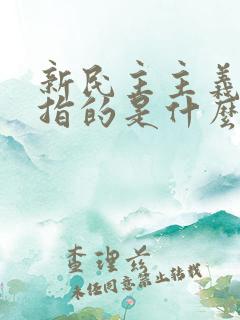 新民主主義
指的是什麼
查理茲
未任同意禁止转载